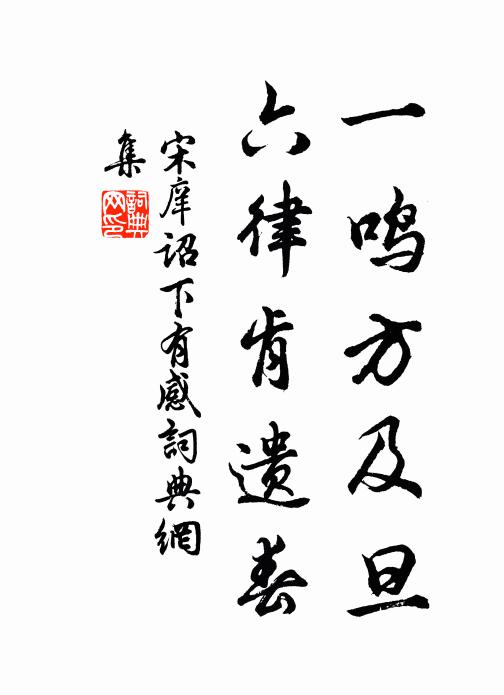 一鸣方及旦
六律肯遗春
宋庠诏下有感詞典網
集
詞典
网印